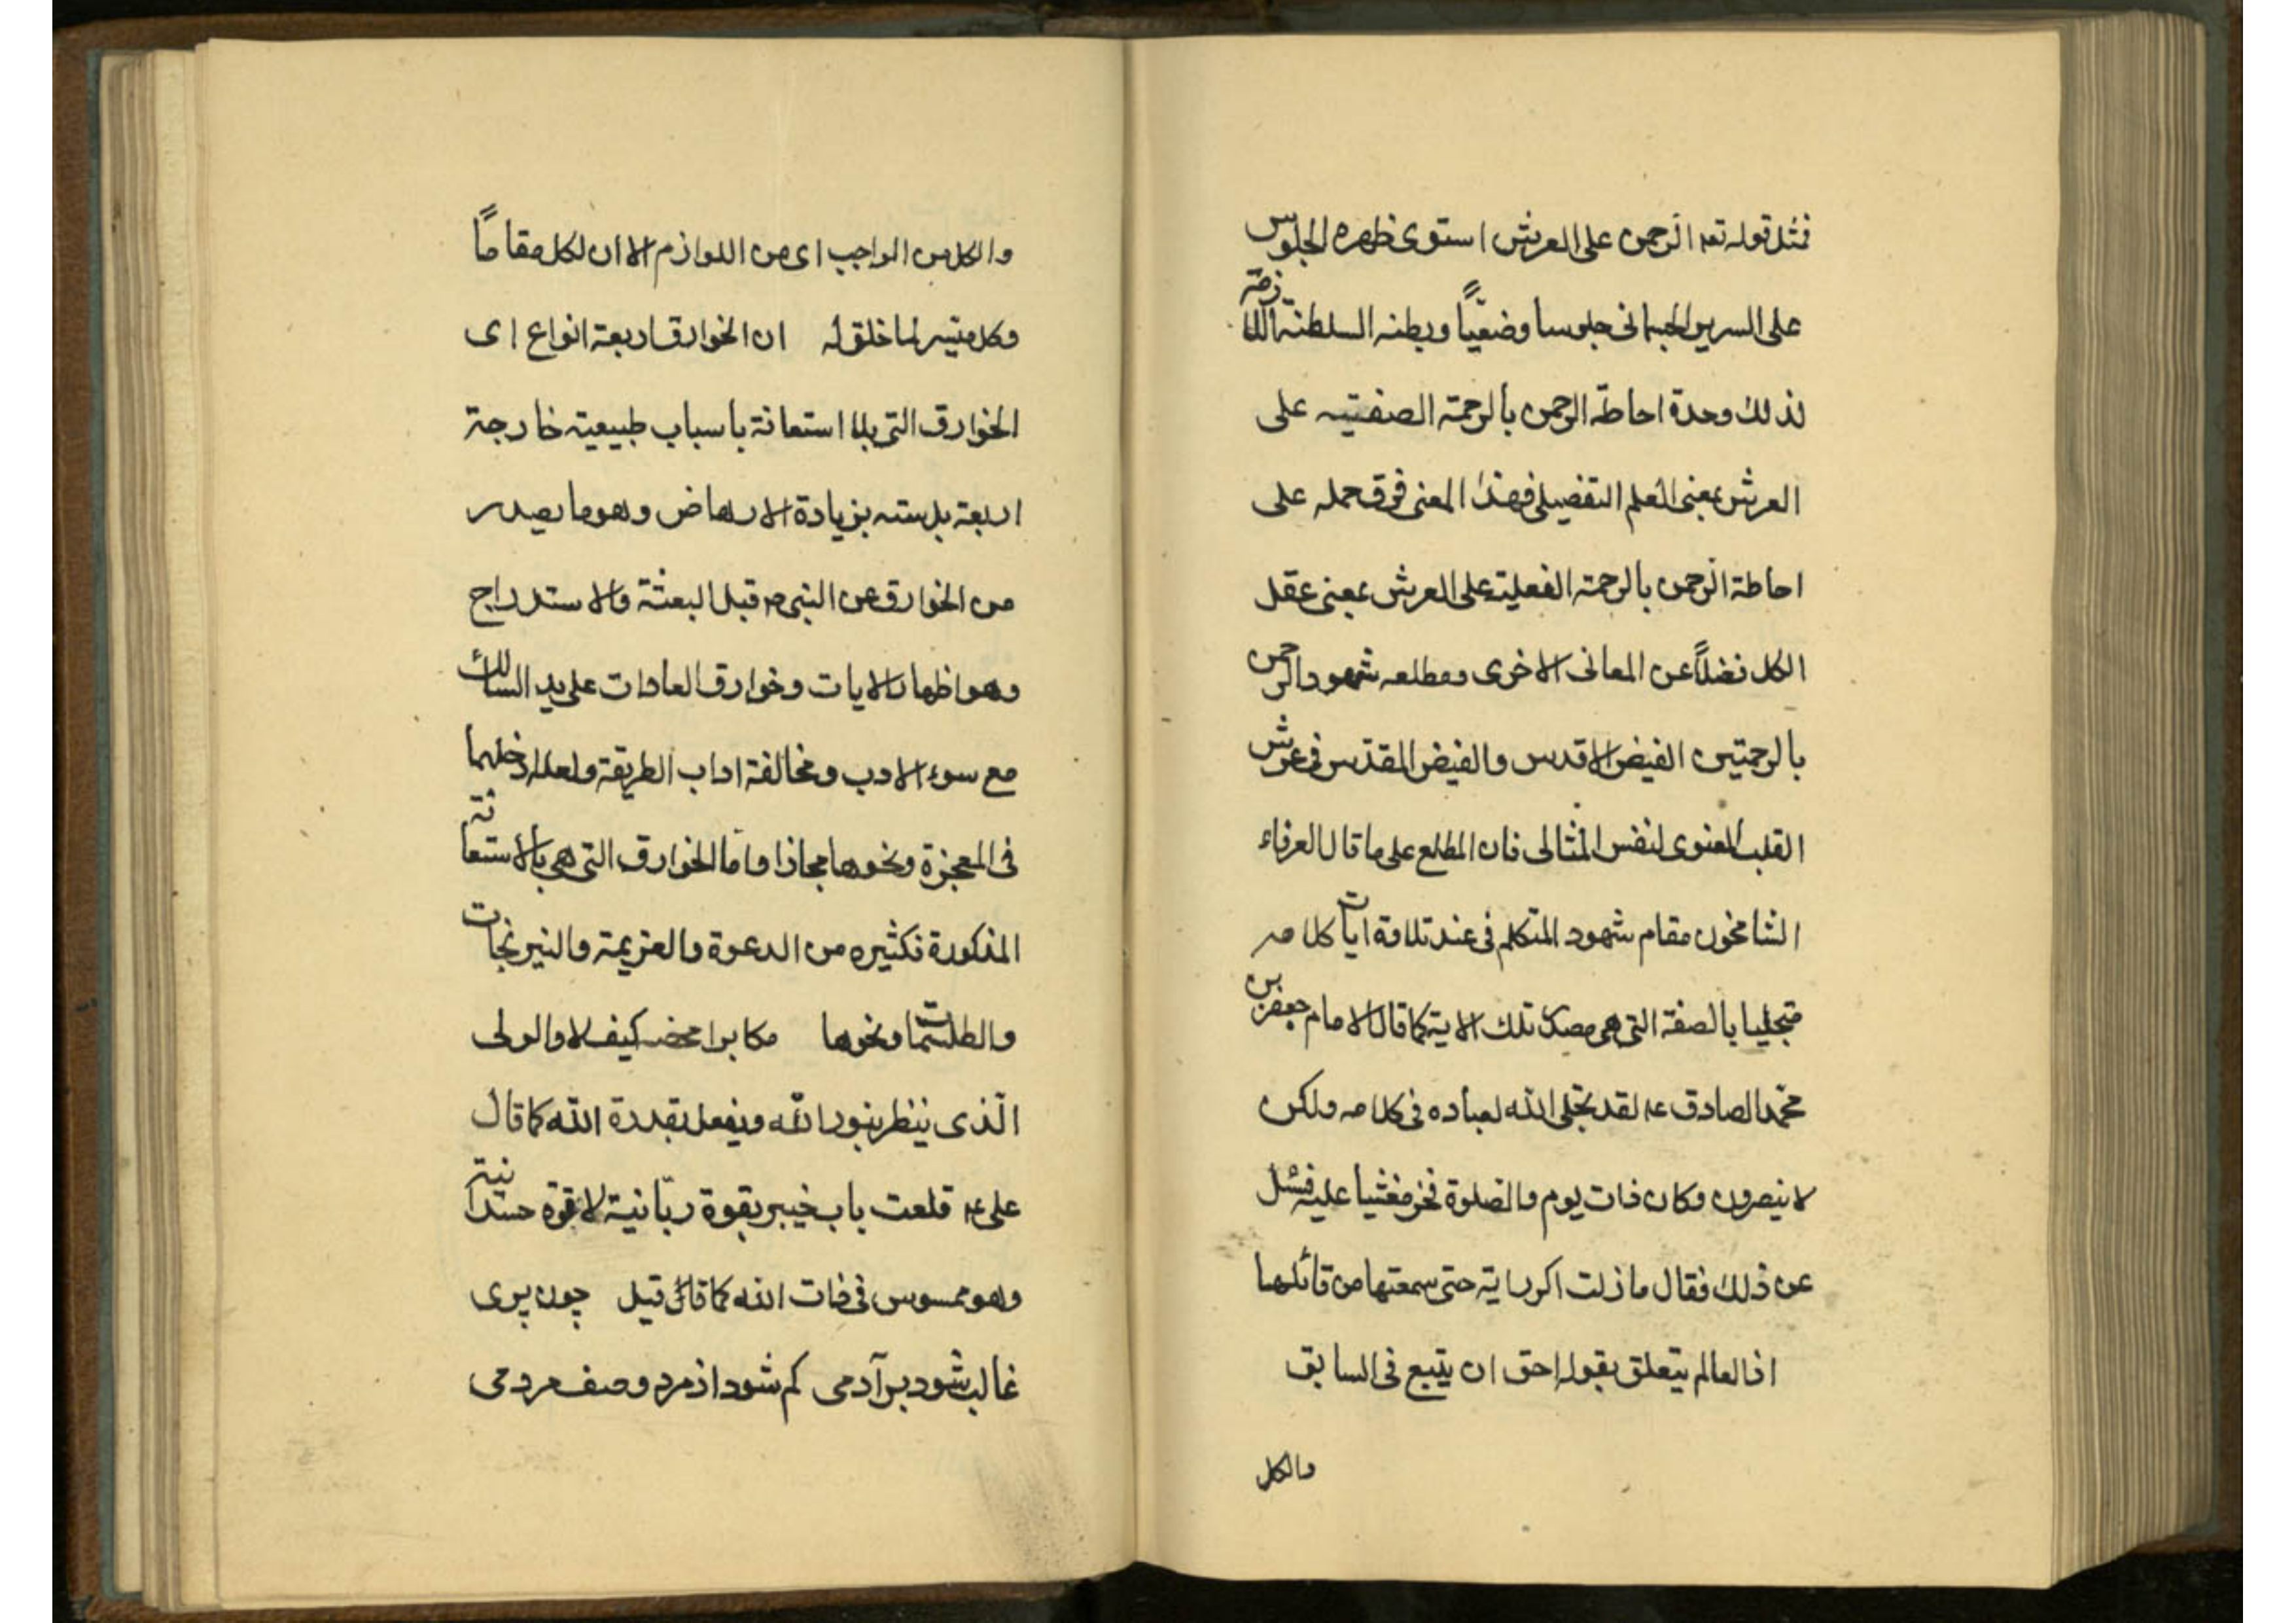 فمثل قوله تعه الرّحمن علی العرش استوی ظهره الجلوس
علی السریر الجسمانی جلوسا وضعیّاً وبطنه السلطنة اللازمة
لذلك وحدة احاطة الرحمن بالرحمة الصفتیه علی
العرش بمعنی العلم التفصیلی فهذا المعنی فوق حمله علی
احاطة الرّحمن بالرحمة الفعلیة علی العرش بمعنی عقل
الکل فضلاً عن المعانی الاخری ومطلعه شهود الرحمن
بالرحمتین الفیض الاقدس والفیض المقدّس فی عرش
القلب المعنوی لنفس المثالی فان المطلع علی ما قال العرفاء
الشامخون مقام شهود المتکلم فی عند تلاوة ایات کلامه
متجلیا بالصفة التی هی مصدر تلك الایة کما قال الامام جعفر بن
محمّد الصادق عه لقد تجلی الله لعباده فی کلامه ولکن
لا یبصرون وکان ذات یوم والصلوة فخر مغشیا علیه فسئل
عن ذلك فقال ما زلت اکرر ایة حتی سمعتها من قائلها
اذ العالم یتعلق بقوله احق ان یتبع فی السابق
والکل
والکل من الواجب ای من اللوازم الا ان لکل مقاماً
وکل میسر لما خلق له ان الخوارق اربعة انواع ای
الخوارق التی بلا استعانة باسباب طبیعیة خارجة
اربعة بل سته بزیادة الارهاض وهو ما یصدر
من الخوارق عن النبی ص قبل البعثة والاستدراج
وهو اظهار الایات وخوارق العادات علی ید السالك
مع سوء الادب ومخالفة اداب الطریقة ولعله ادخلهما
فی المعجزة ونحوها مجازا واما الخوارق التی هی بالاستعانة
المذکورة فکثیره من الدعوة والعزیمة والنیرنجات
والطلسمات ونحوها مکابرا محضه کیف لا والولی
الّذی ینظر بنور الله ویفعل بقدرة الله کما قال
علی عه قلعت باب خیبر بقوة ربّانیة لا قوة جسدانیة
وهو ممسوس فی ذات الله کما قال قیل چون پری
غالب شود بر آدمی کم شود از مرد وصف مردمی